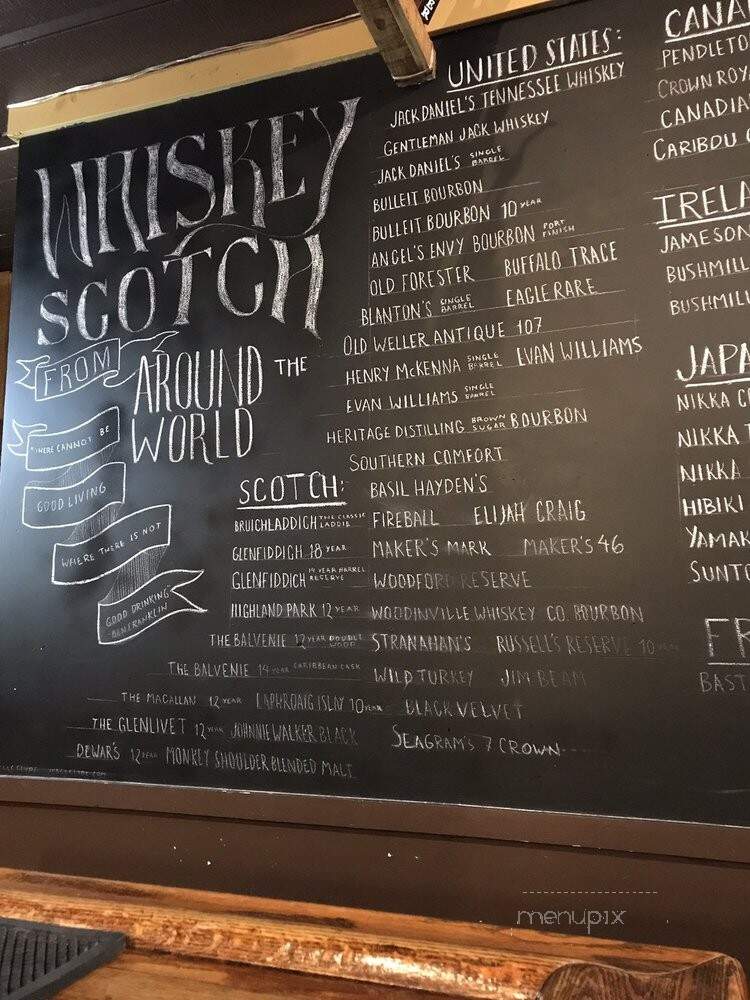 WHISKEY
SCOTCH
FROM
AROUND THE
WORLD
"THERE CANNOT BE
GOOD LIVING
WHERE THERE IS NOT
GOOD DRINKING"
-BEN FRANKLIN
SCOTCH:
BRUICHLADDICH THE CLASSIC LADDIE
GLENFIDDICH 18 YEAR
GLENFIDDICH 14 YEAR BARREL RESERVE
HIGHLAND PARK 12 YEAR
THE BALVENIE 12 YEAR DOUBLE WOOD
THE BALVENIE 14 YEAR CARIBBEAN CASK
THE MACALLAN 12 YEAR LAPHROAIG ISLAY 10 YEAR
THE GLENLIVET 12 YEAR JOHNNIE WALKER BLACK
DEWAR'S 12 YEAR MONKEY SHOULDER BLENDED MALT
UNITED STATES:
JACK DANIEL'S TENNESSEE WHISKEY
GENTLEMAN JACK WHISKEY
JACK DANIEL'S SINGLE BARREL
BULLEIT BOURBON
BULLEIT BOURBON 10 YEAR
ANGEL'S ENVY BOURBON PORT FINISH
OLD FORESTER BUFFALO TRACE
BLANTON'S SINGLE BARREL EAGLE RARE
OLD WELLER ANTIQUE 107
HENRY McKENNA SINGLE BARREL EVAN WILLIAMS
EVAN WILLIAMS SINGLE BARREL
HERITAGE DISTILLING BROWN SUGAR BOURBON
SOUTHERN COMFORT
BASIL HAYDEN'S
FIREBALL ELIJAH CRAIG
MAKER'S MARK MAKER'S 46
WOODFORD RESERVE
WOODINVILLE WHISKEY CO. BOURBON
STRANAHAN'S RUSSELL'S RESERVE 10 YEAR
WILD TURKEY JIM BEAM
BLACK VELVET
SEAGRAM'S 7 CROWN
CANA
PENDLETO
CROWN ROY
CANADIA
CARIBOU C
IRELA
JAMESON
BUSHMILL
BUSHMILL
JAPA
NIKKA C
NIKKA T
NIKKA
HIBIKI
YAMAK
SUNTO
FR
BAST
menupix